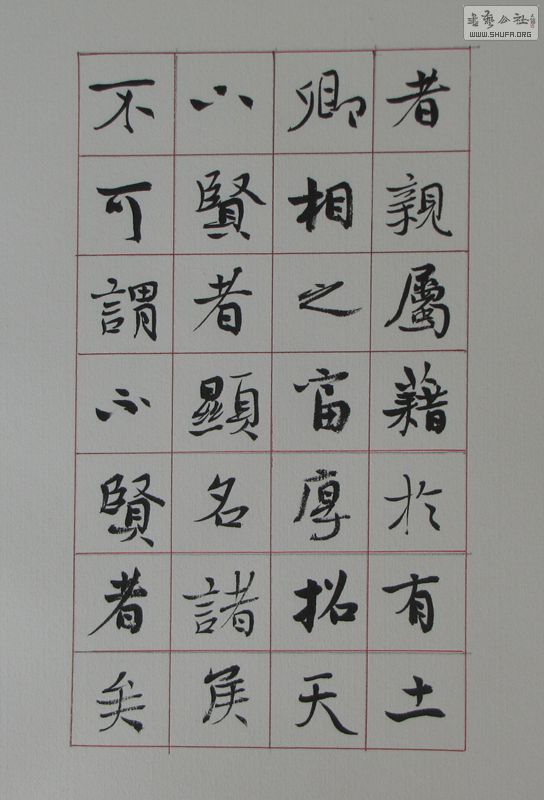 者親屬藉於有土
卿相之富厚招天
下賢者顯名諸侯
不可謂不賢者矣
書藝公社
WWW.SHUFA.ORG